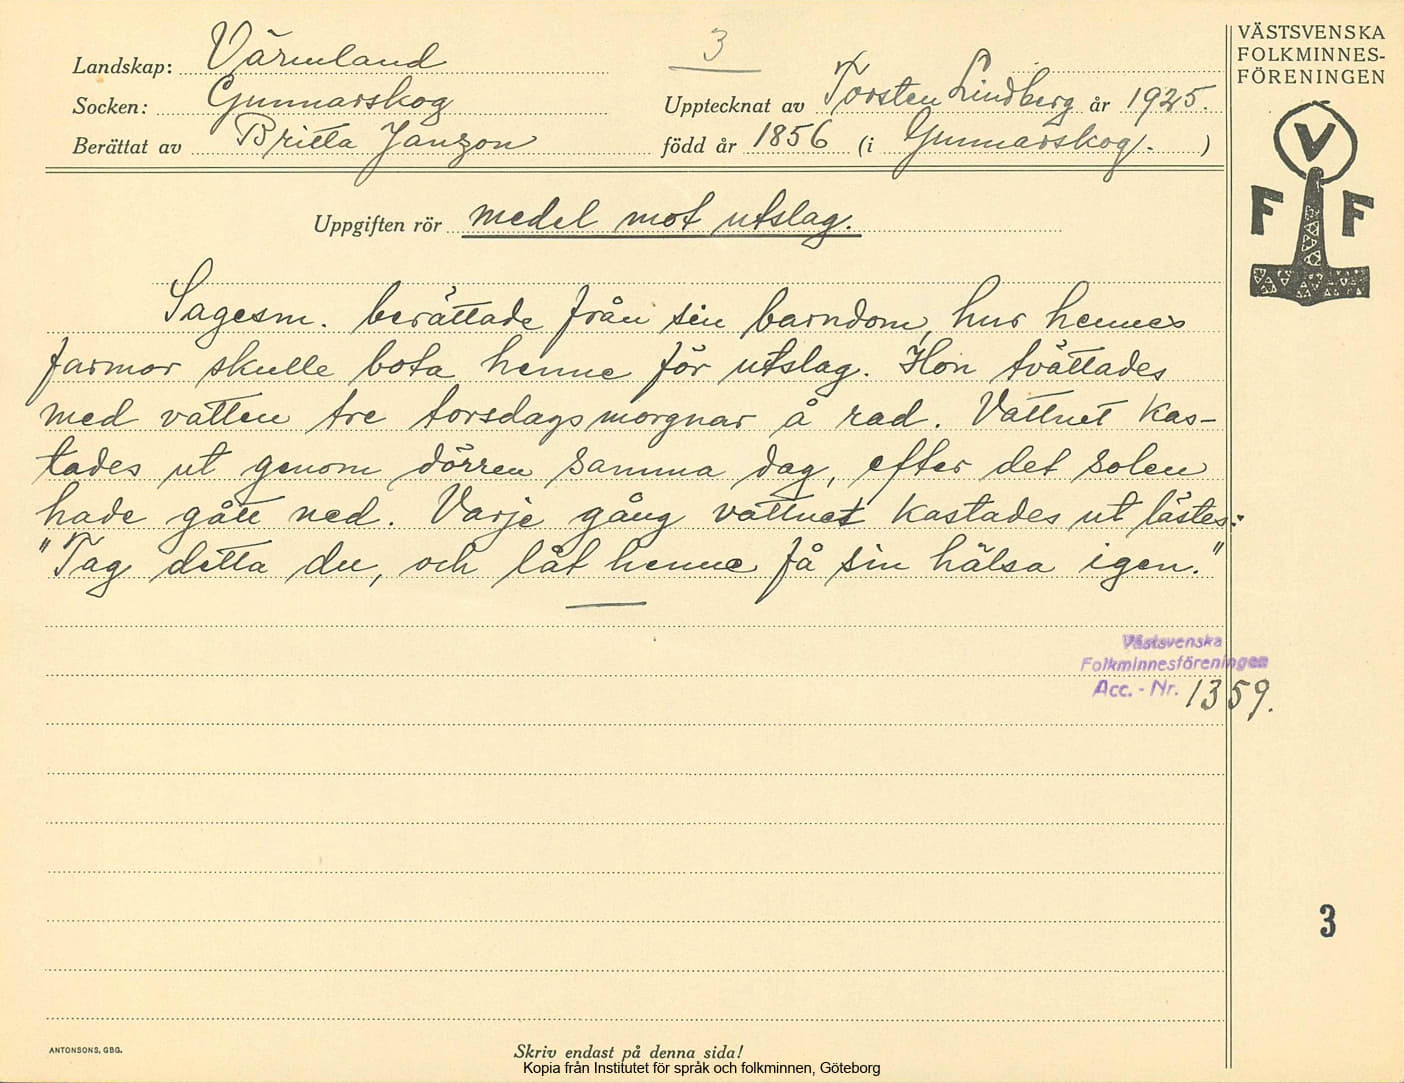 Landskap: Värmland
3
VÄSTSVENSKA
FOLKMINNES-
FÖRENINGEN
Socken: Gunnarskog
Upptecknat av Torsten Lindberg år 1925.
Berättat av Britta Janzon
född år 1856 (i Gunnarskog. )
V
F F
Uppgiften rör medel mot utslag.
Sagesm. berättade från sin barndom, hur hennes
farmor skulle bota henne för utslag. Hon tvättades
med vatten tre torsdagsmorgnar å rad. Vattnet kas-
tades ut genom dörren samma dag, efter det solen
hade gått ned. Varje gång vattnet kastades ut lästes:
"Tag detta du, och låt henne få sin hälsa igen."
Västsvenska
Folkminnesföreningen
Acc. - Nr. 1359.
3
ANTONSONS, GBG.
Skriv endast på denna sida!
Kopia från Institutet för språk och folkminnen, Göteborg